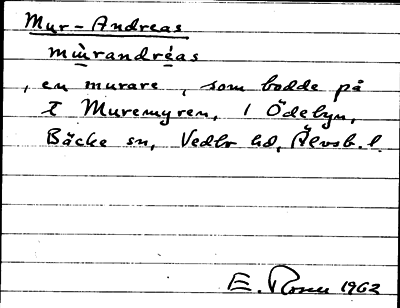 Mur-Andreas
mùrandréas
, en murare, som bodde på
T Muremyren, 1 Ödebyn,
Bäcke sn, Vedbo hd, Älvsb. l.
E. Rosen 1962